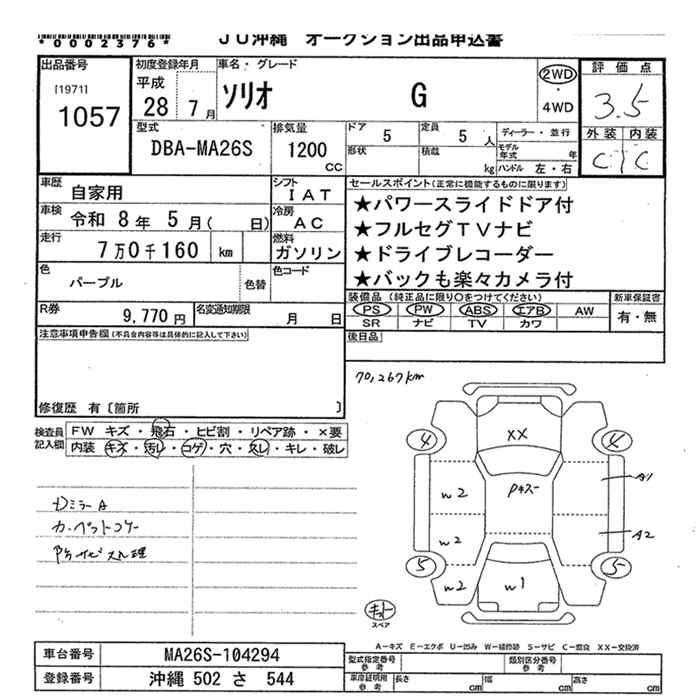 *0002376*
JU沖縄 オークション出品申込書
出品番号
[1971]
1057
初度登録年月
平成
28年 7月
車名・グレード
ソリオ G
2WD
・
4WD
評価点
3.5
外装 内装
C C
型式
DBA-MA26S
排気量
1200
CC
ドア 5
定員 5 人
ディーラー・並行
形状
積載 kg
モデル年式 年
ハンドル 左・右
車歴 自家用
シフト IAT
車検 令和 8年 5月( 日)
冷房 AC
走行 7万0千160 km
燃料 ガソリン
色 パープル
色替
色コード
R券 9,770円
名変通知期限 月 日
セールスポイント(正常に機能するものに限ります)
★パワースライドドア付
★フルセグTVナビ
★ドライブレコーダー
★バックも楽々カメラ付
装備品(純正品に限り○をつけてください)
新車保証書
PS PW ABS エアB AW
SR ナビ TV カワ
有・無
後日品
注意事項申告欄(不具合内容等は具体的に記入して下さい)
修復歴 有〔箇所 〕
検査員記入欄
FW キズ・飛石・ヒビ割・リペア跡・×要
内装 キズ・汚レ・コゲ・穴・スレ・キレ・破レ
DミラーA
カーペットコゲ
70,267km
4 XX 4
W2 Pキズ A1
W2 A2
5 5
W2 W1 W2
スペア
A-キズ E-エクボ U-凹み W-補修跡 S-サビ C-腐食 XX-交換済
車台番号 MA26S-104294
登録番号 沖縄 502 さ 544
型式指定番号 参考
類別区分番号 参考
車庫証明用 参考 長さ cm 幅 cm 高さ cm